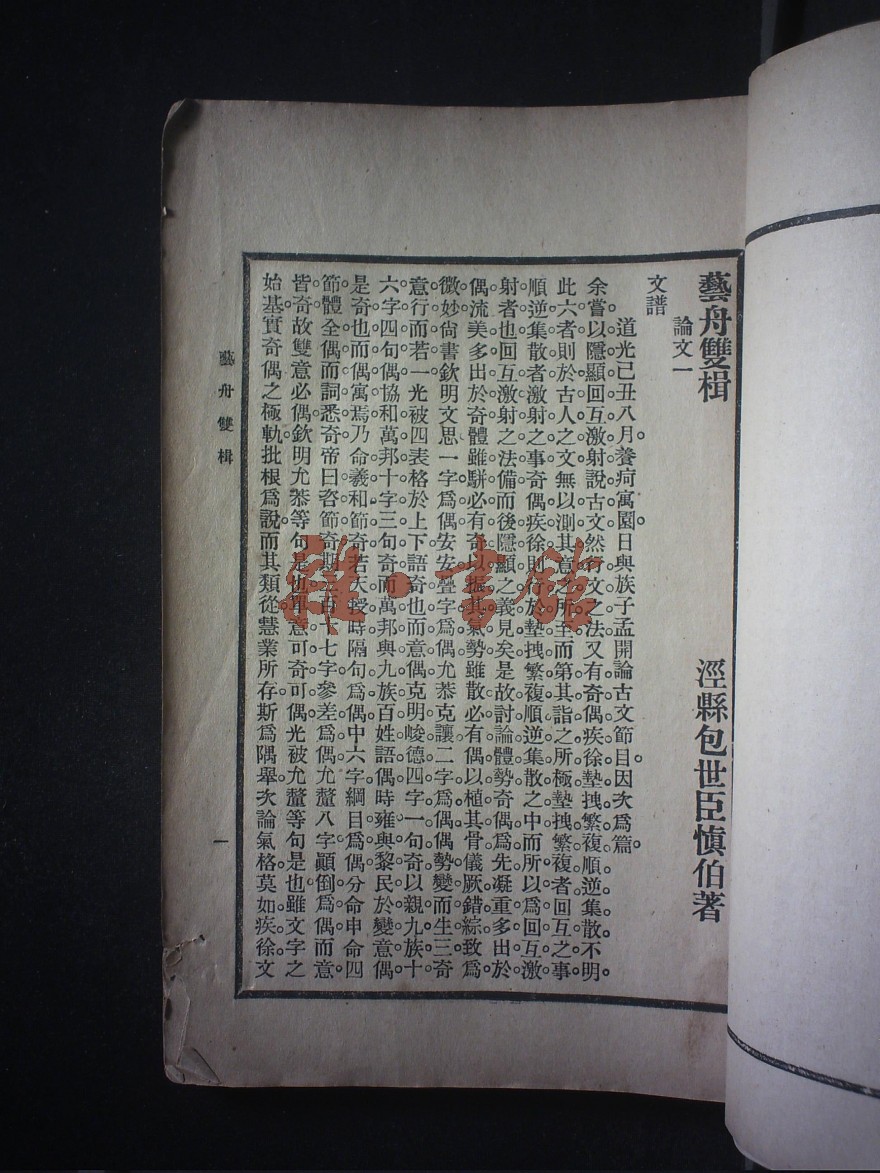 藝舟雙楫
涇縣包世臣慎伯著
論文一
文譜
道光己丑八月。養疴寓園。日與族子孟開論古文節目。因次為篇。
余嘗以隱顯回互激射說古文。然行文之法。又有奇偶疾徐墊拽繁複順逆集散。不明
此六者。則於古人之文。無以測其意之所至。而第其詣之所極。墊拽繁複者。回互之事。
順逆集散者。激射之事。奇偶疾徐。則行於墊拽繁複順逆集散之中。而所以為回互激
射者也。回互激射之法備。而後隱顯之義見矣。是故討論體勢。奇偶為先。凝重多出於
偶。流美多出於奇。體雖駢。必有奇以振其氣。勢雖散。必有偶以植其骨。儀厥錯綜。致為
微妙。尚書欽明文思一字為偶。安安疊字為偶。允恭克讓二字為偶。偶勢變而生三。奇
意行而若一。光被四表格於上下。語奇也而意偶。克明峻德四字一句奇。以親九族十
六字四句偶。協和萬邦十字三句奇。而萬邦與九族百姓語偶。時雍與黎民於變意偶。
是奇也。而偶寓焉。乃命羲和節奇。若天授時隔句為偶。中六字綱目為偶。分命申命四
節體全偶而詞悉奇。帝曰咨節奇。期三百十七字參差為偶。允釐八字顛倒為偶。而意
皆奇。故雙意必偶。欽明允恭等句是也。單意可奇可偶。光被允釐等句是也。雖文字之
始基。實奇偶之極軌。批根為說。而其類從慧業所存。斯為隅舉。次論氣格。莫如疾徐。文
藝舟雙楫
一
雜·書館